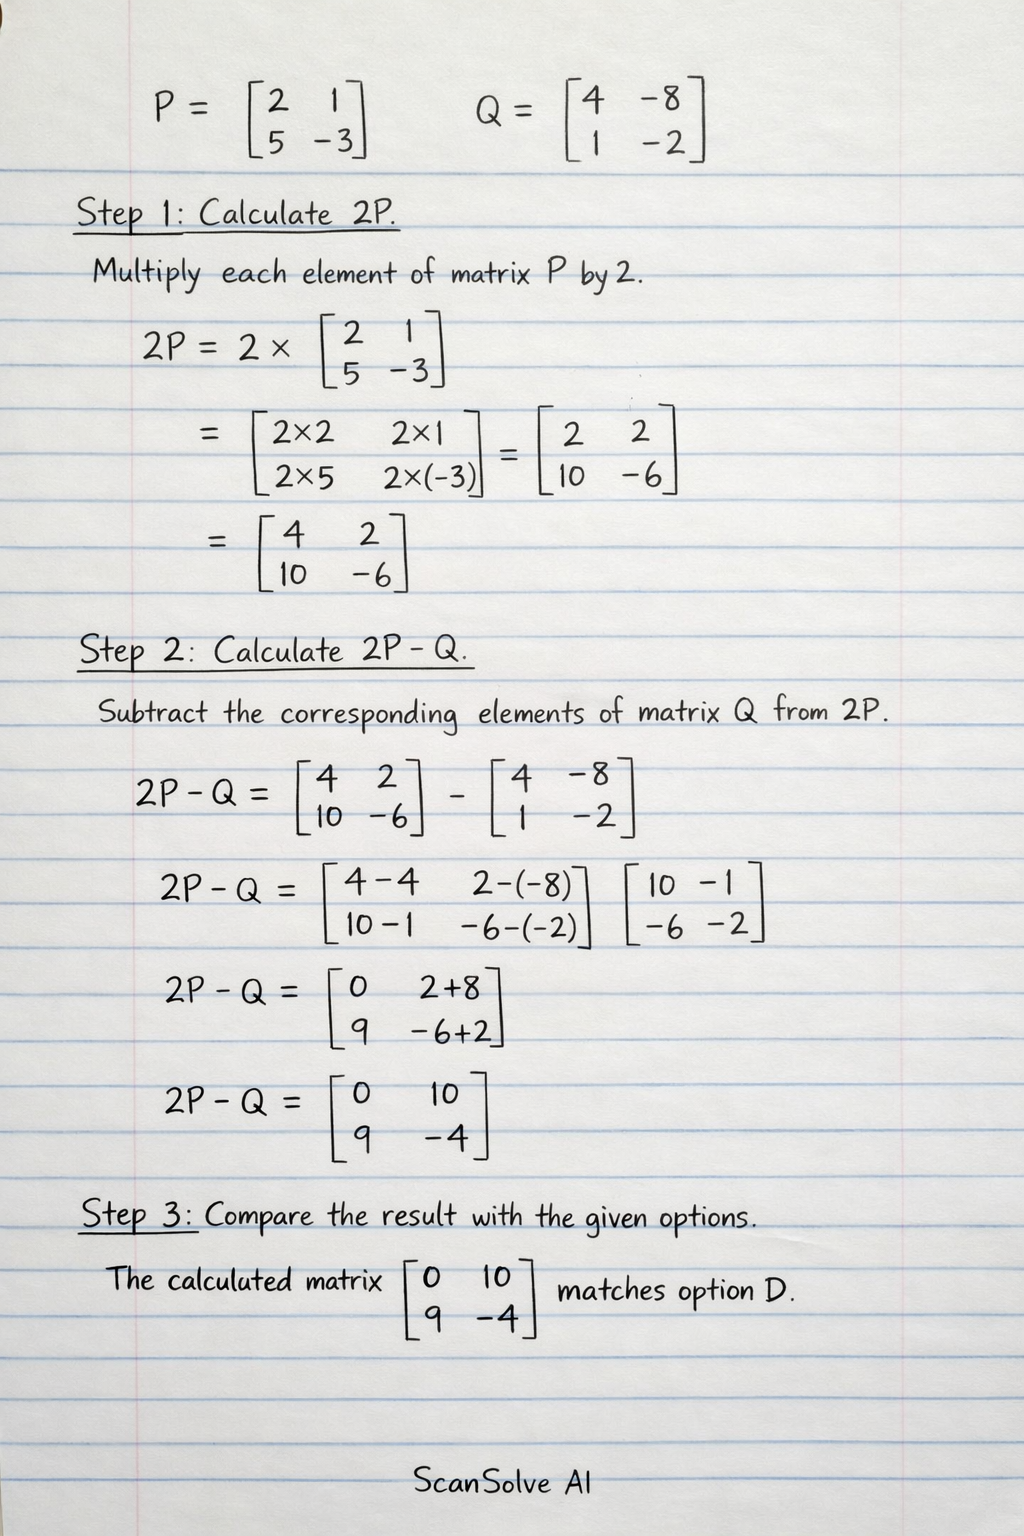 P = [2 1; 5 -3] Q = [4 -8; 1 -2]
Step 1: Calculate 2P.
Multiply each element of matrix P by 2.
2P = 2 × [2 1; 5 -3]
= [2×2 2×1; 2×5 2×(-3)] = [2 2; 10 -6]
= [4 2; 10 -6]
Step 2: Calculate 2P - Q.
Subtract the corresponding elements of matrix Q from 2P.
2P - Q = [4 2; 10 -6] - [4 -8; 1 -2]
2P - Q = [4-4 2-(-8); 10-1 -6-(-2)] [10 -1; -6 -2]
2P - Q = [0 2+8; 9 -6+2]
2P - Q = [0 10; 9 -4]
Step 3: Compare the result with the given options.
The calculated matrix [0 10; 9 -4] matches option D.
ScanSolve AI